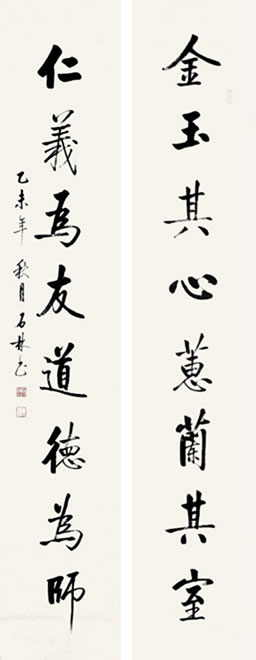 金玉其心蕙蘭其室
仁義為友道德為師
乙未年秋月石林書